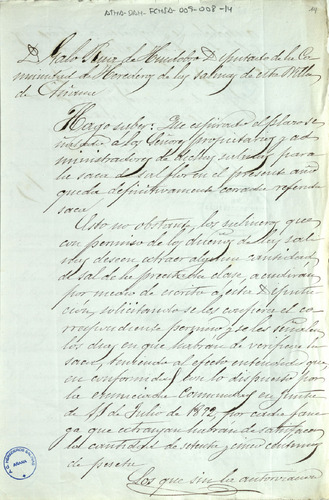 ATHA-DAH-FCHSA-009-008-14
14
D. Galo Ruiz de Huidobro Diputado de la Co-
munidad de Herederos de las salinas de esta Villa
de Añana
Hago saber: Que espirado el plazo se-
ñalado a los Señores propietarios y ad-
ministradores de dichas salinas para
la saca de sal flor en el presente año
queda definitivamente cerrada referida
saca.
Esto no obstante, los salineros que
con permiso de los dueños de las sali-
nas deseen extraer alguna cantidad
de sal de la precitada clase, acudiran
por medio de escrito a esta Diputa-
cion, solicitando se les confiera el co-
rrespondiente permiso y se les señale
los dias en que habran de verificar la
saca, teniendo al efecto entendido que
en conformidad con lo dispuesto por
la enunciada Comunidad en Junta
de 11 de Julio de 1892, por cada fane-
ga que extraigan habran de satisfacer
la cantidad de setenta y cinco centimos
de peseta.
Los que sin la autorizacion
AÑANA